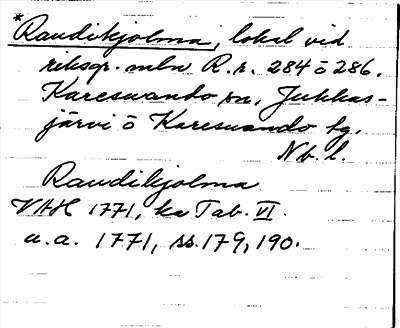 *Raudikjolma, lokal vid
riksgr. mln R.r. 284 o 286.
Karesuando sn, Jukkas-
järvi o Karesuando tg,
Nb. l.
Raudikjolma
VAH 1771, ka Tab. VI.
a.a. 1771, ss. 179, 190.